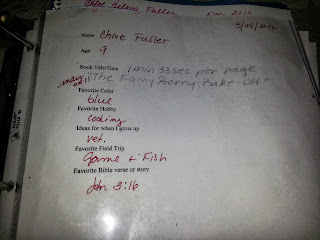 Chloe Helena Fuller
Name Chloe Fuller
Age 9
Book Title/Time 1 min 33 sec per page
"The Fairy Berry Bake-Off"
Favorite Color
blue
Favorite Hobby
cooking
Ideas for when I grow up
vet.
Favorite Field Trip
Game + Fish
Favorite Bible verse or story
John 3:16